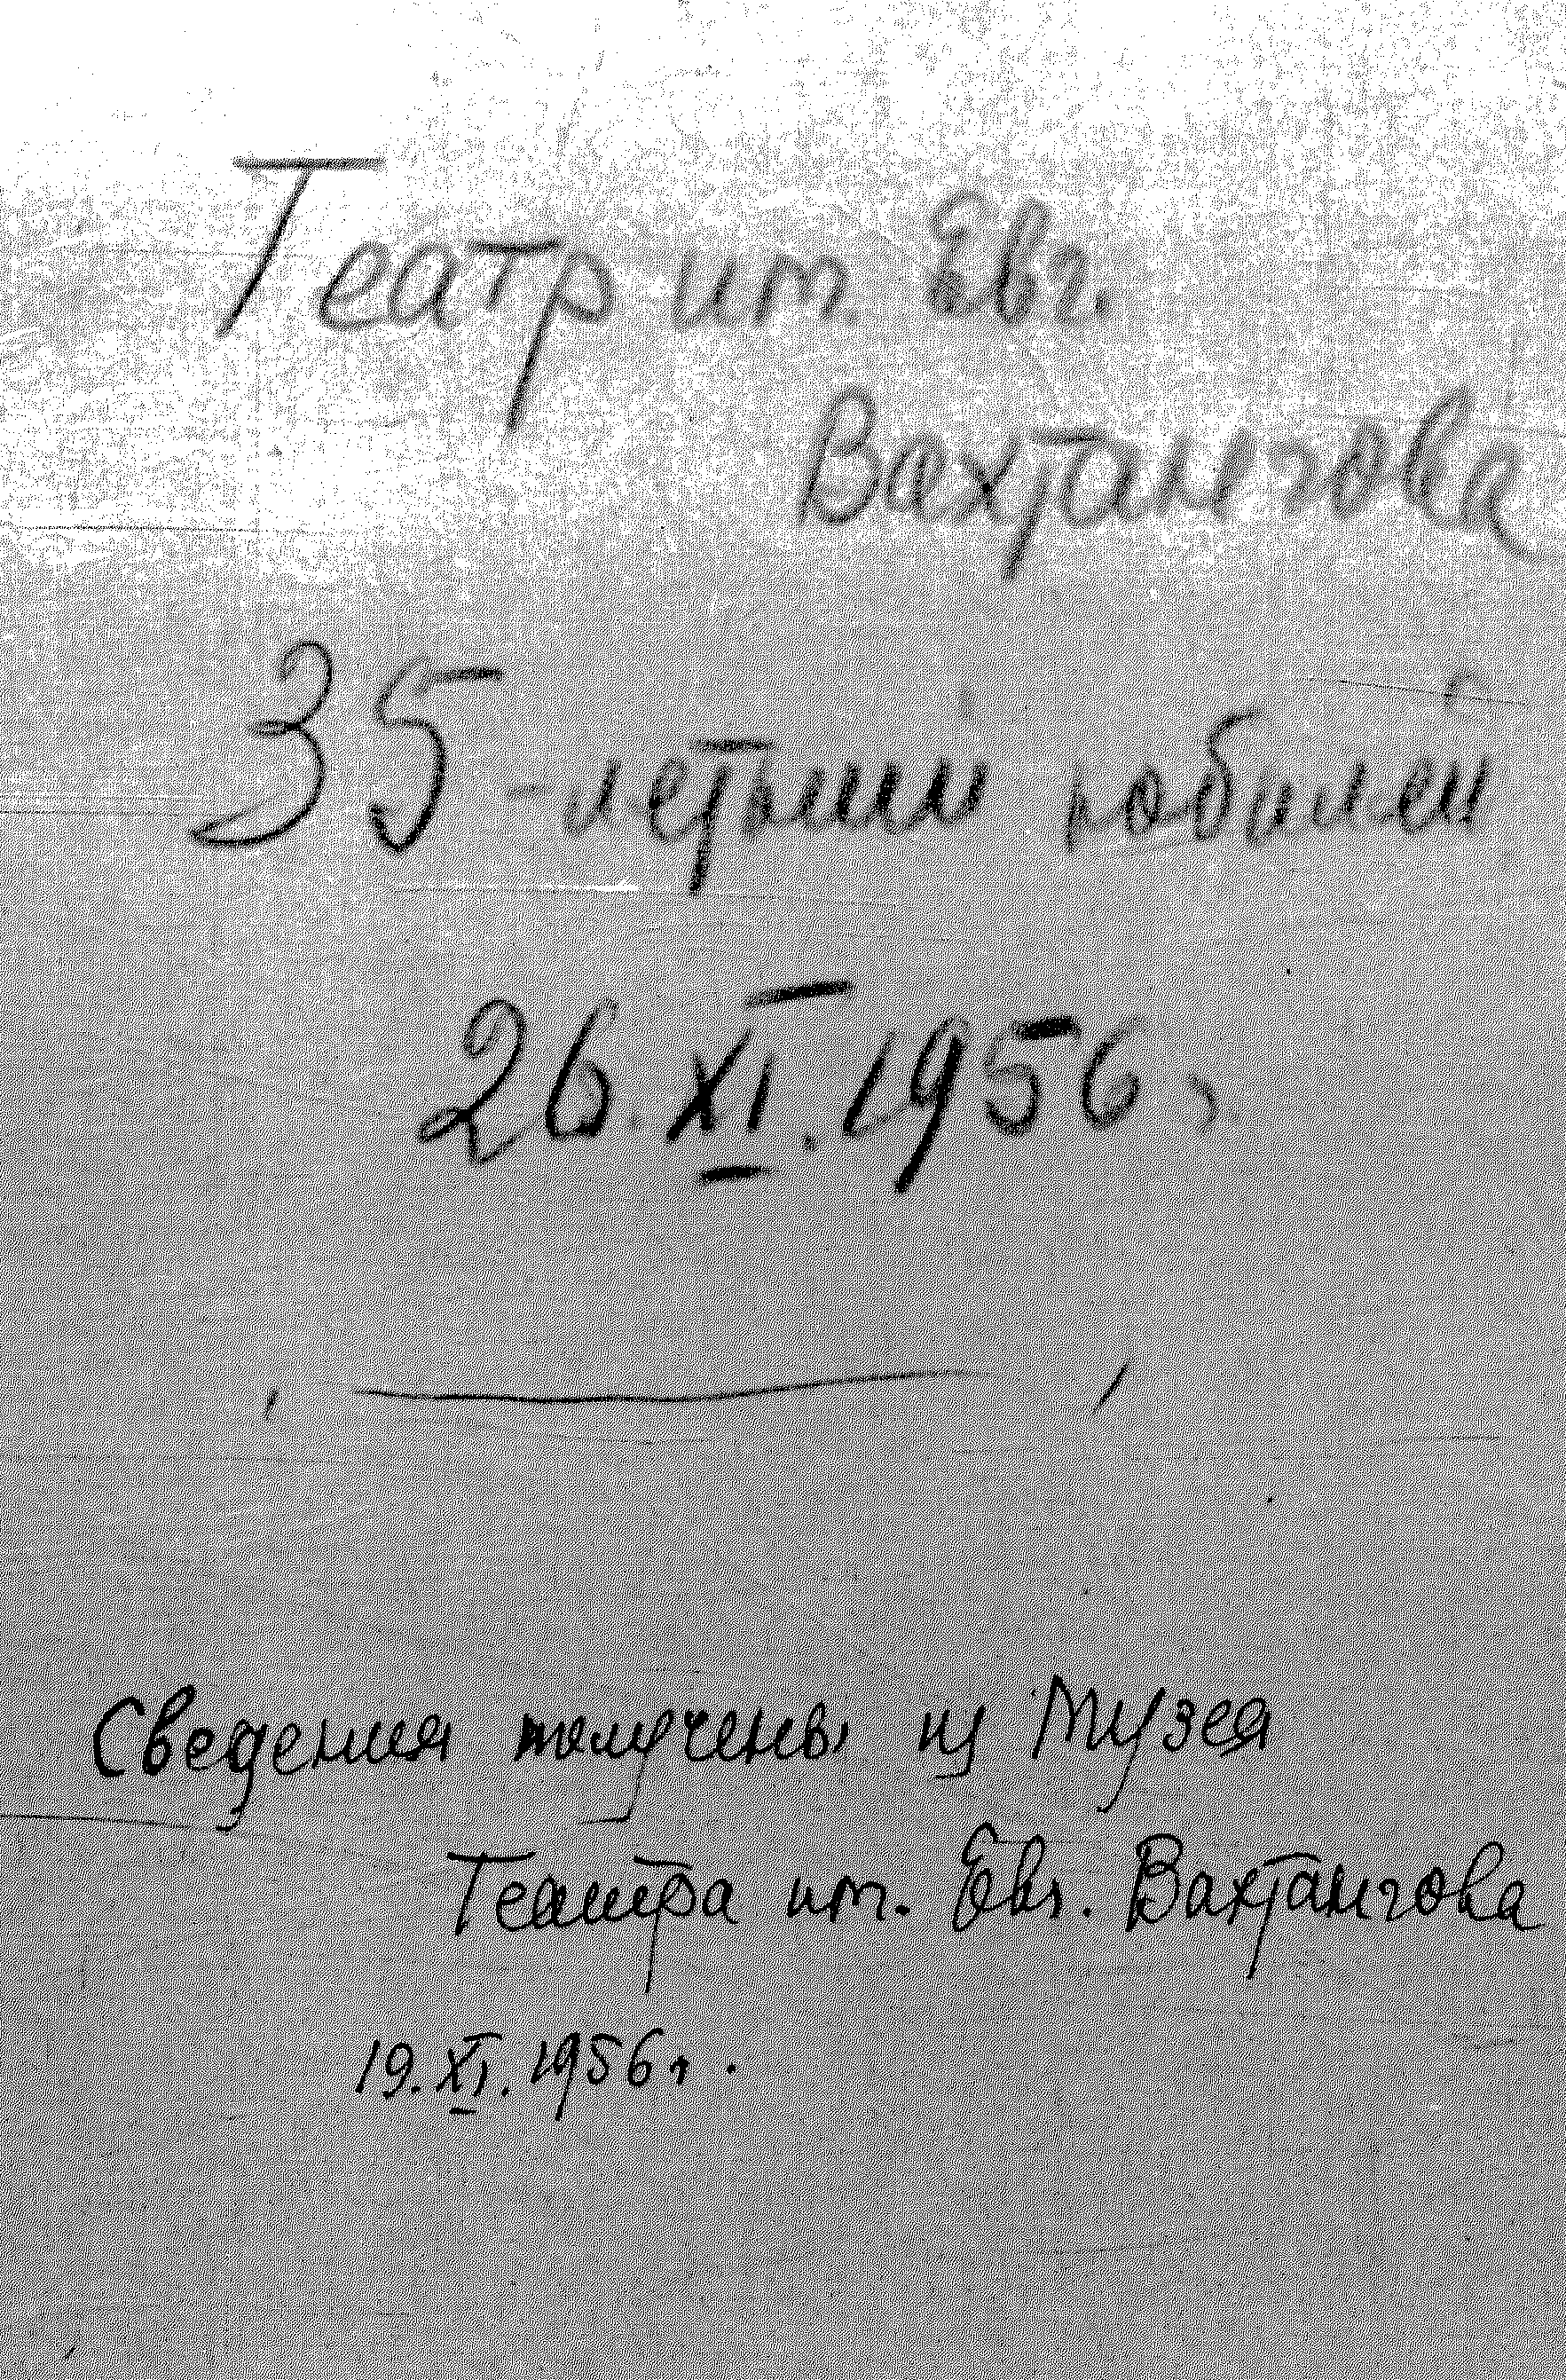 Театр им. Евг.
Вахтангова
35-летний юбилей
26.XI.1956г.
Сведения получены из Музея
Театра им. Евг. Вахтангова
19.XI.1956г.